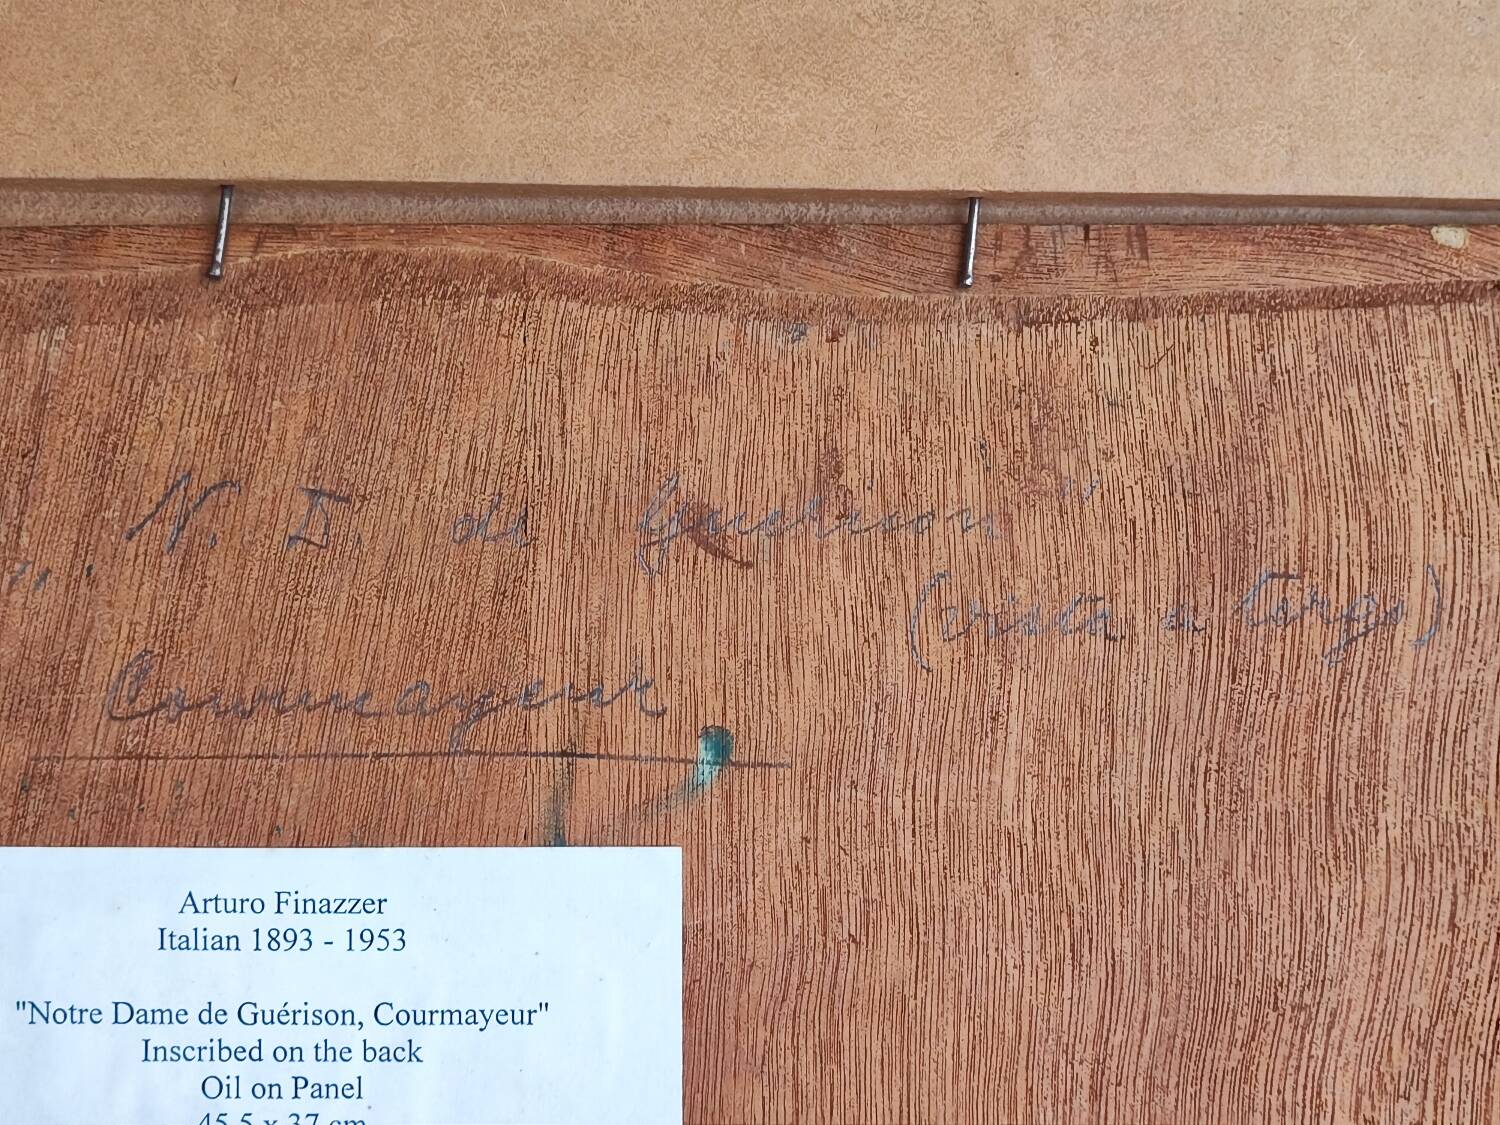 "N. D. de Guerison"
(vista a tergo)
Courmayeur
Arturo Finazzer
Italian 1893 - 1953
"Notre Dame de Guérison, Courmayeur"
Inscribed on the back
Oil on Panel
45.5 x 37 cm